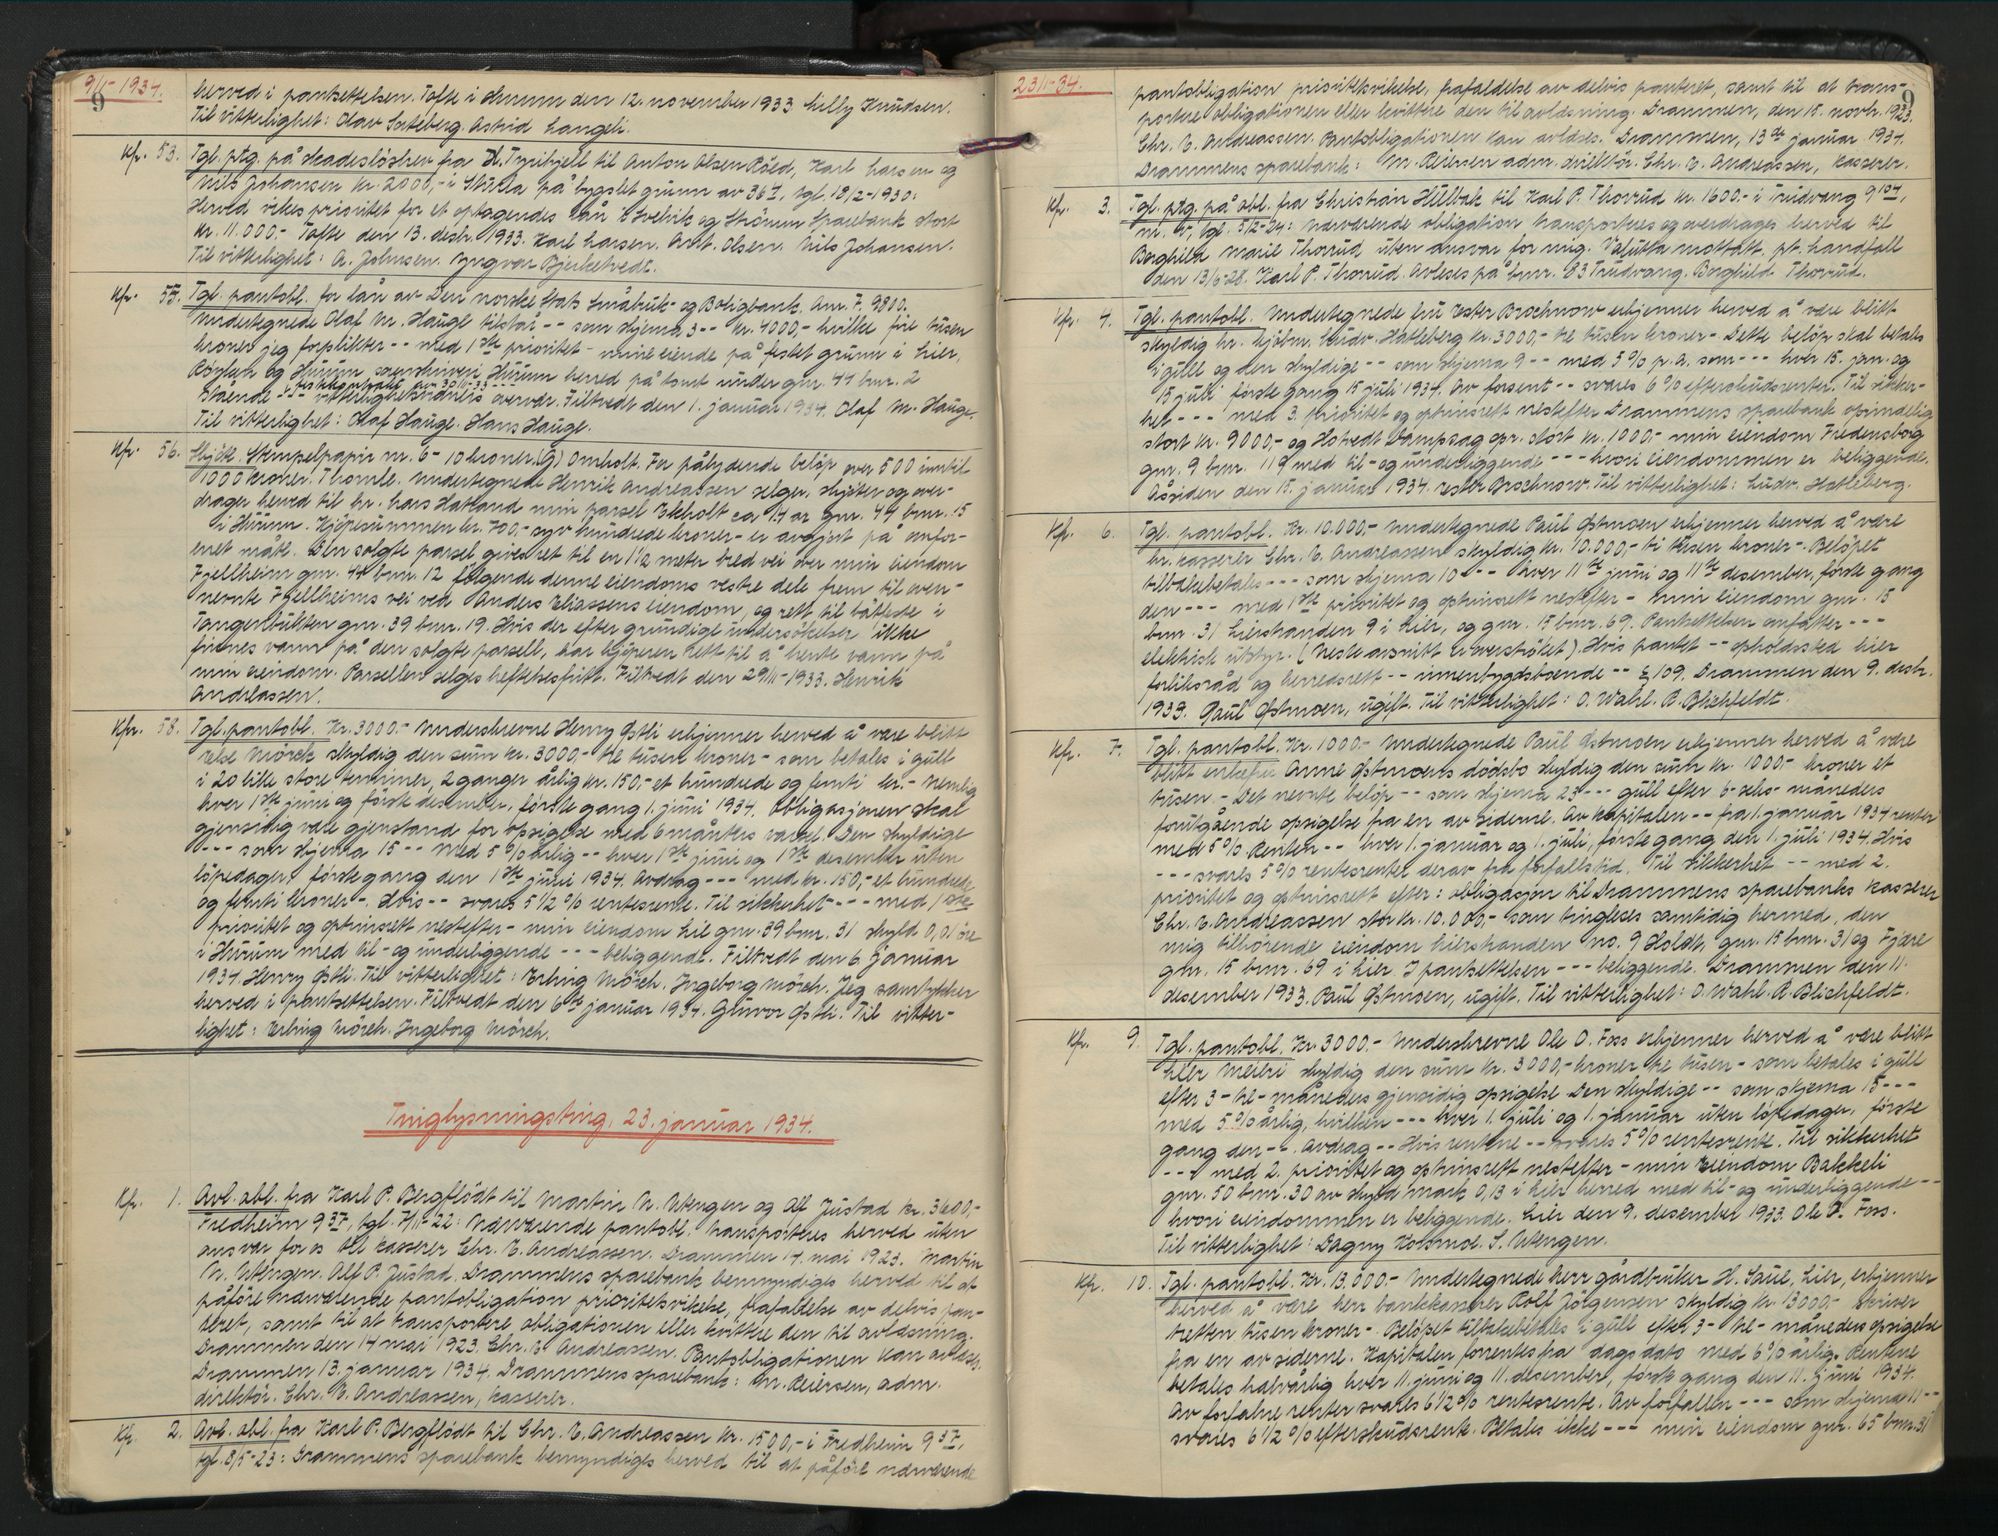 9/1-1934.
9
herved i pantsettelsen. Tofte i Hurum den 12. november 1933 Milly Knudsen.
Til vitterlighet: Olav Sæteberg. Astrid Langeli.
Kfr. 53. Tgl. ptg. på skadesløsbrev fra H. Tyrihjell til Anton Olsen Røed, Karl Larsen og
Nils Johansen kr. 2000,- i på bygslet grunn av 36 tgl. 18/2-1930:
Herved vikes prioritet for et optagendes lån i Svelvik og Strömm Sparebank stort
kr. 11.000,- Tofte den 13. desbr. 1933. Karl Larsen. Ant. Olsen. Nils Johansen.
Til vitterlighet: A. Johnsen. Yngvar Bjerketvedt.
Kfr. 55. Tgl. pantobl. for lån av Den norske Stats Småbruk- og Boligbank. Anr. F. 9800.
Undertegnede Olaf M. Hauge tilstår -- som skjema 3 -- kr. 4000,- hvilke fire tusen
kroner jeg forplikter -- med 1ste prioritet - mine eiende på festet grunn i Lier,
Röyken og Hurum sorenskriveri Hurum herred på tomt under gnr. 41 bnr. 2
festekontrakt av 30/11-33
stående -- vitterlighetsvidners overvær. Filtvedt den 1. januar 1934. Olaf M. Hauge.
Til vitterlighet: Olaf Hauge. Hans Hauge.
Kfr. 56. Skjöte. Stempelpapir nr. 6 - 10 kroner. (G) Omholt. For pålydende belöp over 500 inntil
1000 kroner. Thomle. Undertegnede Henrik Andreassen selger, skjöter og over-
drager herved til hr. Lars Hatland min parsel Ekholt ca 1.4 ar gnr. 44 bnr. 15
i Hurum. Kjöpesummen kr. 700,- syv hundrede kroner - er avgjort på omfor-
enet måte. Den solgte parsel gives ret til en 1 1/2 meter bred vei over min eiendom
Fjellheim gnr. 44 bnr. 12 fölgende denne eiendoms vestre dele frem til oven-
nevnte Fjellheims vei ved Anders Eliassens eiendom, og rett til båtfeste i
Tangenbukten gnr. 39 bnr. 19. Hvis der efter grundige undersökelser ikke
finnes vann på den solgte parsell, har kjöperen rett til å hente vann på
min eiendom. Parsellen selges heftelsesfritt. Filtvedt den 29/11-1933. Henrik
Andreassen.
Kfr. 58. Tgl. pantobl. Kr. 3000.- Underskrevne Henry Östli erkjenner herved å være blitt
Else Mörch skyldig den sum kr. 3000,- tre tusen kroner - som betales i gull
i 20 like store terminer, 2 ganger årlig kr. 150,- et hundrede og femti kr.- nemlig
hver 1ste juni og förste desember, förste gang 1. juni 1934. Obligasjonen skal
gjensidig være gjenstand for opsigelse med 6 måneders varsel. Den skyldige
--- som skjema 15 --- med 5% årlig -- hver 1ste juni og 1ste desember uten
löpedager, förste gang den 1ste juni 1934. Avdrag --- med kr. 150,- et hundrede
og femti kroner-. Hvis -- svares 5 1/2 % rentesrente. Til sikkerhet --- med 1ste
prioritet og optrinsrett nestefter - min eiendom Lie gnr. 39 bnr. 31 skyld 0,01 öre
i Hurum med til- og underliggende --- beliggende. Filtvedt den 6. januar
1934. Henry Östli. Til vitterlighet: Erling Mörch. Ingeborg Mörch. Jeg samtykker
herved i pantsettelsen. Filtvedt den 6te januar 1934. Gunvor Östli. Til vitter-
lighet: Erling Mörch. Ingeborg Mörch.
Tinglysningsting, 23. januar 1934.
Kfr. 1. Avl. obl. fra Karl P. Bergflödt til Martin N. Wengen og Alf Justad kr. 3600,-
Fredheim 9 37, tgl. 7/11-22: Nærværende pantobl. transporteres herved uten
ansvar for os til kasserer Chr. E. Andreassen. Drammen 14. mai 1923. Martin
N. Wengen. Alf P. Justad. Drammens sparebank bemyndiges herved til at
påföre nærværende pantobligation prioritetsvikelse, frafaldelse av delvis pan-
teret, samt til at transportere obligationen eller kvittere den til avlæsning.
Drammen den 14 mai 1923. Chr. E. Andreassen. Pantobligationen kan avlæses.
Drammen, 13. januar 1934. Drammens sparebank: M. Reiersen, adm.
direktör. Chr. E. Andreassen, kasserer.
Kfr. 2. Avl. obl. fra Karl P. Bergflödt til Chr. E. Andreassen kr. 1500,- i Fredheim 9 37,
tgl. 8/5-23: Drammens sparebank bemyndiges herved til at påföre nærværende
23/1-34.
9
pantobligation prioritetsvikelse, frafaldelse av delvis panteret, samt til at trans-
portere obligationen eller kvittere den til avlæsning. Drammen, den 15. novbr. 1923.
Chr. E. Andreassen. Pantobligationen kan avlæses. Drammen, 13de januar 1934.
Drammens sparebank: M. Reiersen adm. direktör. Chr. E. Andreassen, kasserer.
Kfr. 3. Tgl. ptg. på obl. fra Christian Hulbak til Karl P. Thorud kr. 1600.- i Trudvang 9 107,
m. fl., tgl. 5/2-24: Nærværende obligation transporteres og overdrages herved til
Borghild Marie Thorud uten ansvar for mig. Valutta mottatt. pt. Landfall
den 13/6-28. Karl P. Thorud. Avleses på bnr. 83 Trudvang. Borghild Thorud.
Kfr. 4. Tgl. pantobl. Undertegnede fru Ester Brochnow erkjenner herved å være blitt
skyldig hr. kjöbm. Ludv. Hatleberg kr. 3000,- tre tusen kroner - Dette belöp skal betales
i gull og den skyldige -- som skjema 9 -- med 5% p.a. som --- hver 15. jan. og
15 juli förste gang 15 juli 1934. Av forsent -- svares 6% efterskudsrenter. Til sikker-
het --- med 3. prioritet og optrinsrett nestefter Drammens sparebank oprindelig
stort kr. 9000,- og Hotvedt Dampsag opr. stort kr. 1000,- min eiendom Fredensborg
gnr. 9 bnr. 119 med til- og underliggende --- hvori eiendommen er beliggende.
Åssiden den 15. januar 1934. Ester Brochnow. Til vitterlighet: Ludv. Hatleberg.
Kfr. 6. Tgl. pantobl. Kr. 10.000,- Undertegnede Paul Östmoen erkjenner herved å være
hr. kasserer Chr. E. Andreassen skyldig kr. 10.000,- ti tusen kroner-. Belöpet
tilbakebetales --- som skjema 10 --- hver 11te juni og 11te desember, förste gang
den --- med 1ste prioritet og optrinsrett nestefter - min eiendom gnr. 15
bnr. 31 Lierstranden 9 i Lier, og gnr. 15 bnr. 69. Pantsettelsen omfatter ---
elektrisk utstyr. (Neste avsnitt er overströket). Hvis pantet -- opholdssted hier
forliksråd og herredsrett -- innenbygdsboende -- § 109. Drammen den 9. desbr.
1933. Paul Östmoen, ugift. Til vitterlighet: O. Wahl. R. Blichfeldt.
Kfr. 7. Tgl. pantobl. Kr. 1000.- Undertegnede Paul Östmoen erkjenner herved å være
blitt Anne Östmoens dödsbo skyldig den sum kr. 1000,- kroner et
tusen.- Det nevnte belöp -- som skjema 23 --- gull efter 6-seks- måneders
forutgående opsigelse fra en av siderne. Av kapitalen -- fra 1. januar 1934 renter
med 5%. Renten -- hver 1. januar og 1. juli, förste gang den 1. juli 1934. Hvis
--- svares 5% rentesrenter derav fra forfallstid. Til sikkerhet -- med 2.
prioritet og optrinsrett efter: obligasjon til Drammens sparebanks kasserer
Chr. E. Andreassen stor kr. 10.000,- som tingleses samtidig hermed, den
mig tilhörende eiendom Lierstranden no. 9 Holdt, gnr. 15 bnr. 31 og Fjære
gnr. 15 bnr. 69 i Lier. I pantsettelsen --- beliggende. Drammen den 11.
desember 1933. Paul Östmoen, ugift. Til vitterlighet: O. Wahl. R. Blichfeldt.
Kfr. 9. Tgl. pantobl. Kr. 3000.- Underskrevne Ole O. Foss erkjenner herved å være blitt
Lier Meieri skyldig den sum kr. 3000,- kroner tre tusen - som betales i gull
efter 3-tre- måneders gjensidig opsigelse Den skyldige -- som skjema 15 ---
med 5% årlig, hvilken --- hver 1. juli og 1. januar uten löpedager, förste
gang den --. Avdrag -- Hvis rentene -- svares 5% rentesrente. Til sikkerhet
--- med 2. prioritet og optrinsrett nestefter - min eiendom Bakkeli
gnr. 50 bnr. 30 av skyld mark 0,13 i Lier herred med til- og underliggende --
hvori eiendommen er beliggende. Lier den 9. desember 1933. Ole O. Foss.
Til vitterlighet: Dagny Korsmoe. S. Wengen.
Kfr. 10. Tgl. pantobl. Kr. 13.000.- Undertegnede herr gårdbruker H. Saue, Lier, erkjenner
herved å være herr bankkasserer Rolf Jörgensen skyldig kr. 13000,- skriver
tretten tusen kroner-. Belöpet tilbakebetales i gull efter 3-tre- måneders opsigelse
fra en av siderne. Kapitalen forrentes fra dags dato med 6% årlig. Rentene
betales halvårlig hver 11. juni og 11. desember, förste gang den 11. juni 1934.
Av forfalne renter svares 6 1/2 % rentesrente. Av forfallen --- som skjema 11 --
svares 6 1/2 % efterskudsrente. Betales ikke --- min eiendom gnr. 65 bnr. 31